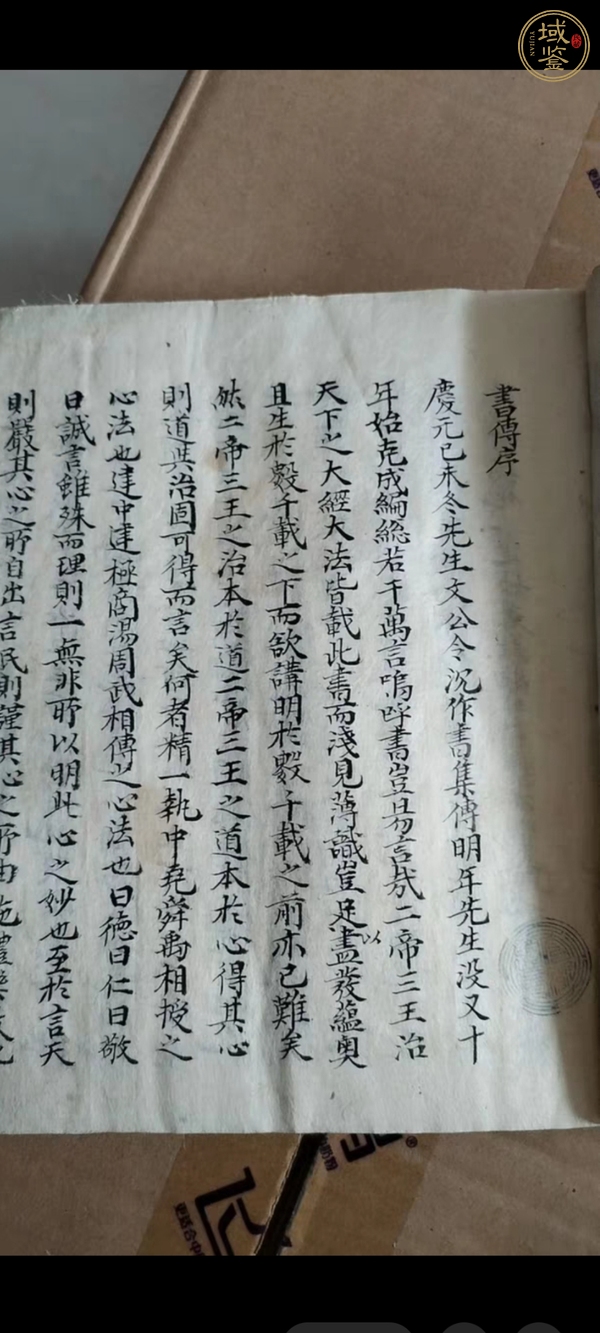 域鉴
YUJIAN
書傳序
慶元己未冬先生文公令沉作書集傳明年先生没又十
年始克成編総若干萬言嗚呼書豈易言㢤二帝三王治
天下之大經大法皆載此書而淺見薄識豈足以盡發蘊奧
且生於數千載之下而欲講明於數千載之前亦已難矣
然二帝三王之治本於道二帝三王之道本於心得其心
則道與治固可得而言矣何者精一執中堯舜禹相授之
心法也建中建極商湯周武相傳之心法也曰德曰仁曰敬
曰誠言雖殊而理則一無非所以明此心之妙也至於言天
則嚴其心之所自出言民則謹其心之所由施禮樂